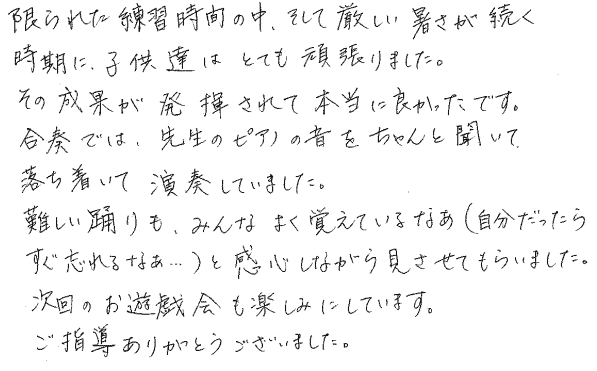 限られた練習時間の中、そして厳しい暑さが続く
時期に、子供達はとても頑張りました。
その成果が発揮されて本当に良かったです。
合奏では、先生のピアノの音をちゃんと聞いて
落ち着いて演奏していました。
難しい踊りも、みんなよく覚えているなあ(自分だったら
すぐ忘れるなぁ…)と感心しながら見させてもらいました。
次回のお遊戯会も楽しみにしています。
ご指導ありがとうございました。